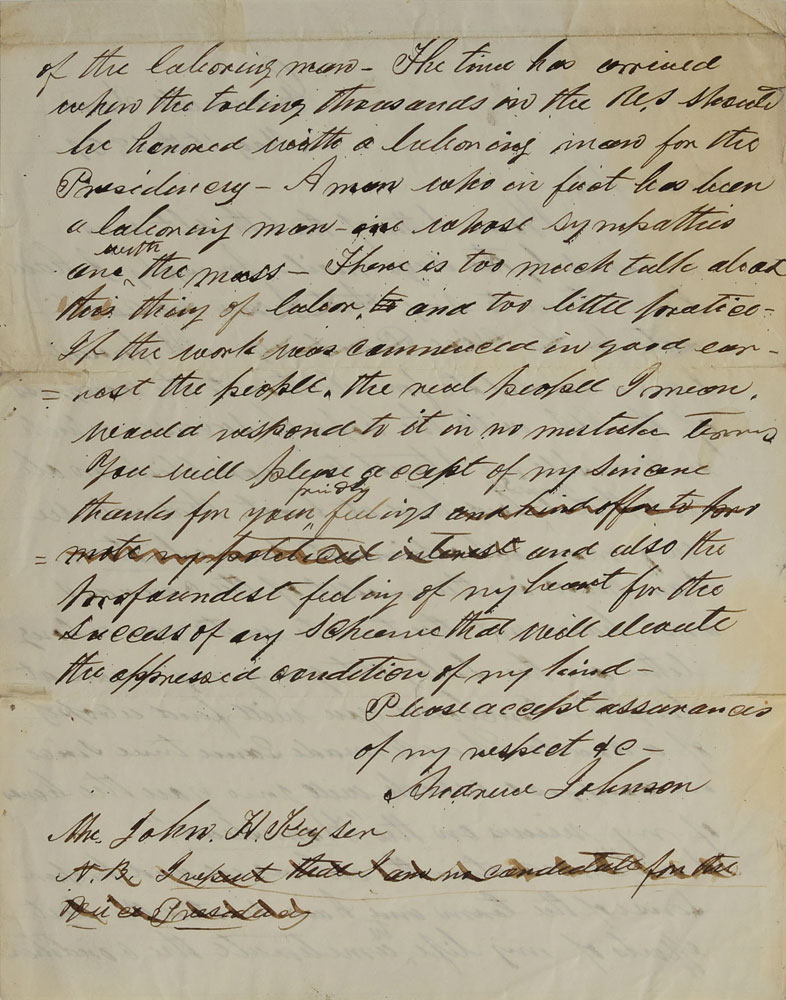 of the laboring man – The time has arrived
when the toiling thousands in the U.S should
be honored with a laboring man for the
Presidency – A man who in fact has been
a laboring man – one whose sympathies
with
are the mass – There is too much talk about
this thing of labor, to and too little practice –
If the work was commenced in good ear-
= nest the people, the real people I mean,
would respond to it in no mistake terms
You will please accept of my sincere
friendly
thanks for your feelings and kind offer to pro
= mote my political interest and also the
profoundest feeling of my heart for the
success of any scheme that will elevate
the oppressed condition of my kind –
Please accept assurances
of my respect &c –
Andrew Johnson
Mr. John. H. Keyser
N.B. I repeat that I am no candidate for the
Vice Presidency